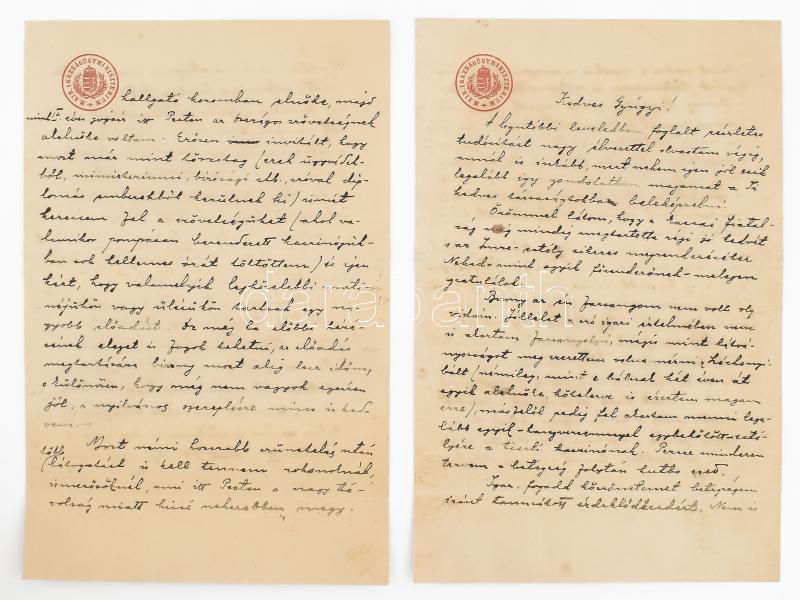 MAGY. KIR. IGAZSÁGÜGYMINISZTERIUM
hallgató koromban elnöke, majd
mint
itt Pesten az
alelnöke voltam. Erősen invitált, hogy
most már mint
ből, miniszteriumi, bírósági stb., szóval dip-
lomás emberekből kerülnek ki) ismét
keressem fel a szövetségüket (ahol va-
lamikor pompásan berendezett kaszinójuk-
ban sok kellemes órát töltöttem) és igen
kért, hogy valamelyik legközelebbi
vagy ülésükön tartsak egy na-
gyobb előadást. De még ha előbbi kéré-
sének eleget is fogok tehetni, az előadás
megtartására bizony most alig lesz időm,
különösen, hogy még nem vagyok egészen
jól, a nyilvános szereplésre nincs is ked-
vem.—
Most némi hosszabb szünetelés után
több látogatást is kell tennem rokonoknál,
ismerősöknél, ami itt Pesten a nagy tá-
volság miatt kissé nehezebben megy.
MAGY. KIR. IGAZSÁGÜGYMINISZTERIUM
Kedves Gyögyi!
A legutóbbi leveledben foglalt részletes
tudósítást nagy élvezettel olvastam végig,
annál is inkább, mert nekem igen jól esik
legalább így gondolatban magamat a Ti
kedves társaságtokba beleképzelni.
Örömmel látom, hogy a kassai fiatal-
ság még mindig megtartotta régi jó kedvét
s az Imre-estély sikeres megrendezéséhez
Neked - mint egyik főrendezőnek - melegen
gratulálok.
Bizony az én farsangom nem volt oly
vidám. Jóllehet a szó igazi értelmében nem
is akartam farsangolni, mégis mint látvá-
nyosságot meg szerettem volna nézni a Széchenyi-
bált (némileg, mint e bálnak két éven át
egyik alelnöke, kötelezve is éreztem magam
erre), másfelől pedig fel akartam menni lega-
lább egyik - hangversennyel egybekötött - esté-
lyére a tiszti kaszinónak. Persze mindezen
tervem a betegség folytán cütba esett.
Igaz, fogadd köszönetemet betegségem
iránt tanusított érdeklődésedért. Nem is
darabanth